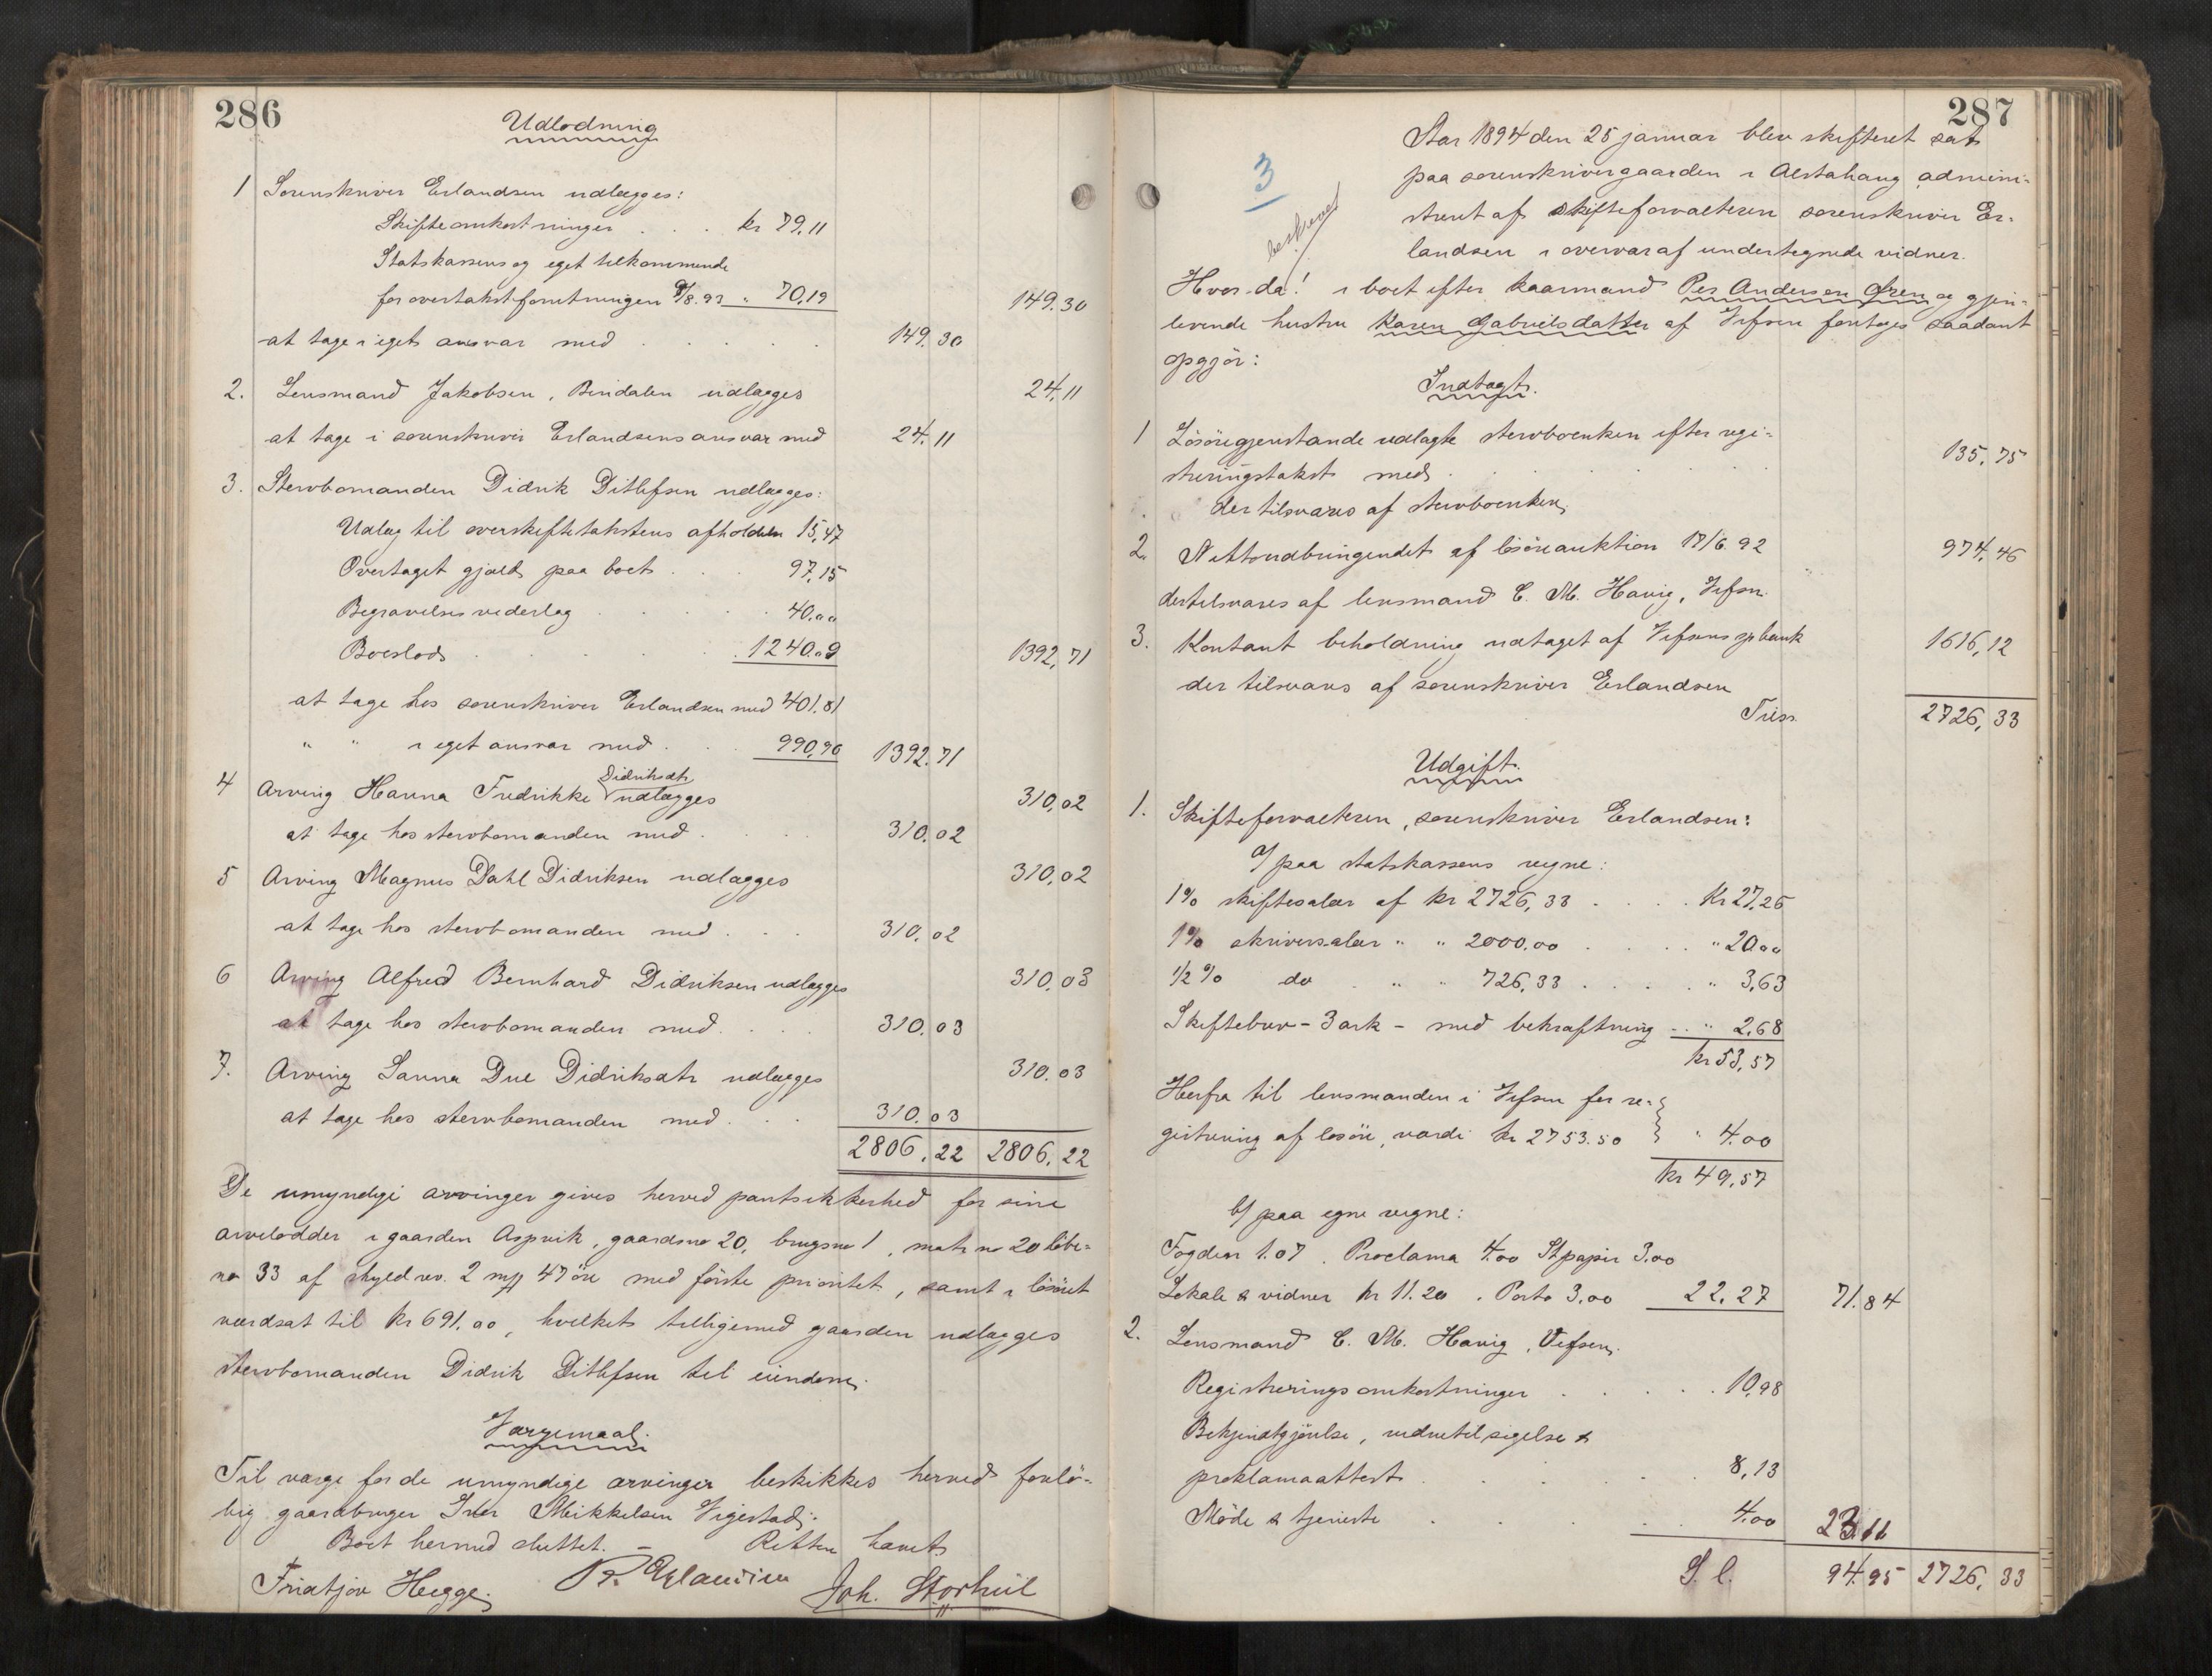 286
Udlodning
1 Sorenskriver Erlandsen udlægges:
Skifteomkostninger . . . kr 79,11
Statskassens og eget tilkommende
for overtakstforretningen 9/8.93 " 70,19 149.30
at tage i eget ansvar med . . . . . 149.30
2. Lensmand Jakobsen, Bindalen udlægges 24,11
at tage i sorenskriver Erlandsens ansvar med 24.11
3. Stervbomanden Didrik Ditlefsen udlægges:
Udlæg til overskiftetakstens afholdelse 15,47
Overtaget gjæld paa boet . . . 97,15
Begravelsesvederlag . . . . . 40,00
Boeslod . . . . . 1240.09 1392,71
at tage hos sorenskriver Erlandsen med 401.81
" " i eget ansvar med . . . 990,90 1392.71
4 Arving Hanna Fredrikke Didriksdtr udlægges 310,02
at tage hos stervbomanden med . . . . 310.02
5 Arving Magnus Dahl Didriksen udlægges 310,02
at tage hos stervbomanden med . . . 310.02
6 Arving Alfred Bernhard Didriksen udlægges 310.03
at tage hos stervbomanden med . . . . 310.03
7. Arving Sanna Due Didriksdtr udlægges 310.03
at tage hos stervbomanden med . . . 310.03
2806.22 2806.22
De umyndige arvinger gives herved pantsikkerhed for sine
arvelodder i gaarden Aspvik, gaardsno 20, brugsno 1, matr no 20 løbe-
no 33 af skyld rev. 2 mk 47 øre med første prioritet, samt i løsøret
værdsat til kr 691.00, hvilket tilligemed gaarden udlægges
stervbomanden Didrik Ditlefsen til eiendom.
Værgemaal.
Til værge for de umyndige arvinger beskikkes herved forelø-
big gaardbruger Iver Mikkelsen Vigestad.
Boet hermed sluttet. – Retten hævet.
Friatjov Hegge. P. Erlandsen Joh. Storhiil
287
3
beskrevet
Aar 1894 den 25 januar blev skifteret sat
paa sorenskrivergaarden i Alstahaug admini-
streret af skifteforvalteren sorenskriver Er-
landsen i overvær af undertegnede vidner.
Hvor da! i boet efter kaarmand Per Andersen Øren og gjen-
levende hustru Karen Gabrielsdatter af Vefsen foretages saadant
opgjør:
Indtægt.
1 Løsøregjenstande udlagte stervboenken efter regi-
streringstakst med . . . . . . 135,75
der tilsvares af stervboenken.
2. Nettoudbringendet af løsøreauktion 17/6.92 974,46
der tilsvares af lensmand C. M. Havig, Vefsn.
3. Kontant beholdning udtaget af Vefsens spbank 1616,12
der tilsvares af sorenskriver Erlandsen
Tilss. 2726,33
Udgift.
1. Skifteforvalteren, sorenskriver Erlandsen:
a/ paa statskassens vegne:
1% skiftesalær af kr 2726,33 . . . . Kr 27,26
1% skriversalær " " 2000.00 . . . . . " 20.00
1/2% do . " " 726,33 . . . . . " 3,63
Skiftebrev – 3 ark – med bekræftning . . " 2,68
kr 53,57
Herfra til lensmanden i Vefsen for re-
gistrering af løsøre, værdi kr 2753.50 " 4.00
kr 49,57
b/ paa egne vegne:
Fogden 1.07. Proclama 4.00 Stpapir 3.00
Lokale & vidner kr 11.20. Porto 3,00 22,27 71.84
2. Lensmand C. M. Havig, Vefsen.
Registreringsomkostninger . . . . . 10,98
Bekjendtgjørelse, vidnetilsigelse &
proklamaattest . . . . . 8,13
Møde & tjeneste . . . . . 4.00 23.11
S. l. 94.95 2726,33